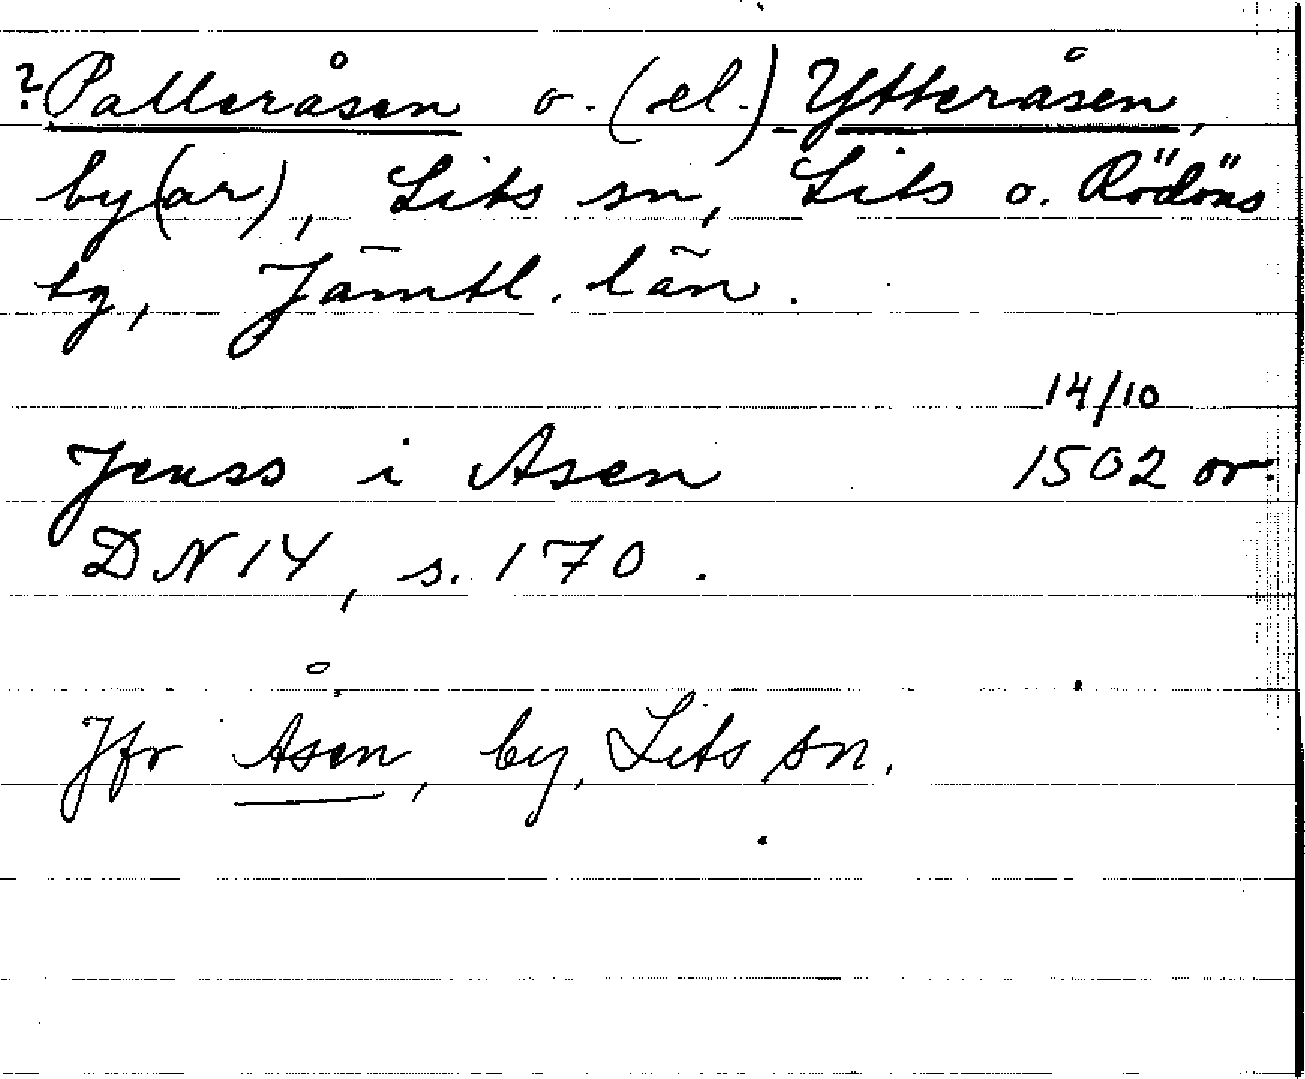 ? Palleråsen o. (el.) Ytteråsen,
by(ar), Lits sn, Lits o. Rödöns
tg, Jämtl. län.
14/10
Jenss i Asen 1502 or.
DN 14, s. 170.
Jfr Åsen, by, Lits sn.